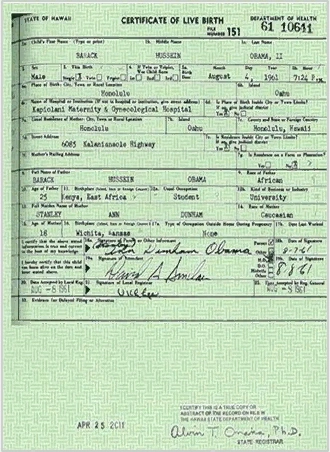 STATE OF HAWAII CERTIFICATE OF LIVE BIRTH DEPARTMENT OF HEALTH
FILE NUMBER 151 61 10641
1a. Child's First Name (Type or print) 1b. Middle Name 1c. Last Name
BARACK HUSSEIN OBAMA, II
2. Sex 3. This Birth 4. If Twin or Triplet, Was Child Born 5a. Birth Date Month Day Year 5b. Hour
Male Single Twin Triplet 1st 2nd 3rd August 4, 1961 7:24 P.M.
6a. Place of Birth: City, Town or Rural Location 6b. Island
Honolulu Oahu
6c. Name of Hospital or Institution (If not in hospital or institution, give street address) 6d. Is Place of Birth Inside City or Town Limits? If no, give judicial district
Kapiolani Maternity & Gynecological Hospital Yes No
7a. Usual Residence of Mother: City, Town or Rural Location 7b. Island 7c. County and State or Foreign Country
Honolulu Oahu Honolulu, Hawaii
7d. Street Address 7e. Is Residence Inside City or Town Limits? If no, give judicial district
6085 Kalanianaole Highway Yes No
7f. Mother's Mailing Address 7g. Is Residence on a Farm or Plantation?
Yes No
8. Full Name of Father 9. Race of Father
BARACK HUSSEIN OBAMA African
10. Age of Father 11. Birthplace 12a. Usual Occupation 12b. Kind of Business or Industry
25 Kenya, East Africa Student University
13. Full Maiden Name of Mother 14. Race of Mother
STANLEY ANN DUNHAM Caucasian
15. Age of Mother 16. Birthplace 17a. Type of Occupation Outside Home During Pregnancy
18 Wichita, Kansas None
I certify that the above stated information is true and correct to the best of my knowledge. 18a. Signature of Parent or Other Informant Parent Other
Dunham Obama 8-7-61
I hereby certify that this child was born alive on the date and hour stated above. 19a. Signature of Attendant M.D. D.O. Midwife Other
David A. Sinclair 8-8-61
20. Date Accepted by Local Reg. 21. Signature of Local Registrar 22. Date Accepted by Reg. General
AUG -8 1961 AUG -8 1961
23. Evidence for Delayed Filing or Alteration
APR 25 2011
I CERTIFY THIS IS A TRUE COPY OR
ABSTRACT OF THE RECORD ON FILE IN
THE HAWAII STATE DEPARTMENT OF HEALTH
Alvin T. Onaka, Ph.D.
STATE REGISTRAR